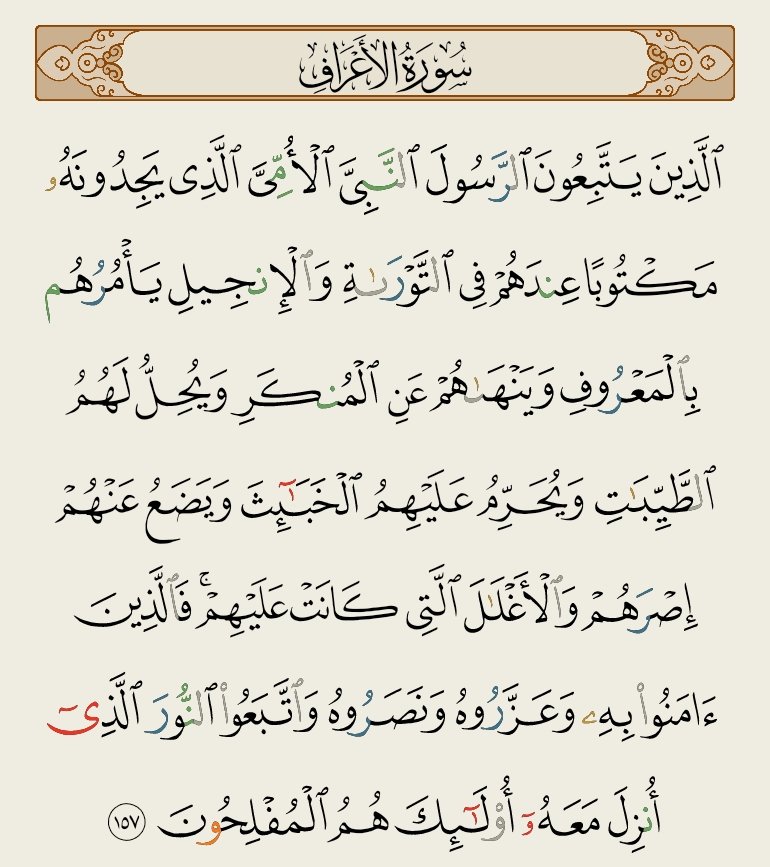 سُورَةُ الأَعۡرَافِ
ٱلَّذِينَ يَتَّبِعُونَ ٱلرَّسُولَ ٱلنَّبِيَّ ٱلۡأُمِّيَّ ٱلَّذِي يَجِدُونَهُۥ
مَكۡتُوبًا عِندَهُمۡ فِي ٱلتَّوۡرَىٰةِ وَٱلۡإِنجِيلِ يَأۡمُرُهُم
بِٱلۡمَعۡرُوفِ وَيَنۡهَىٰهُمۡ عَنِ ٱلۡمُنكَرِ وَيُحِلُّ لَهُمُ
ٱلطَّيِّبَٰتِ وَيُحَرِّمُ عَلَيۡهِمُ ٱلۡخَبَٰٓئِثَ وَيَضَعُ عَنۡهُمۡ
إِصۡرَهُمۡ وَٱلۡأَغۡلَٰلَ ٱلَّتِي كَانَتۡ عَلَيۡهِمۡۚ فَٱلَّذِينَ
ءَامَنُواْ بِهِۦ وَعَزَّرُوهُ وَنَصَرُوهُ وَٱتَّبَعُواْ ٱلنُّورَ ٱلَّذِيٓ
أُنزِلَ مَعَهُۥٓ أُوْلَٰٓئِكَ هُمُ ٱلۡمُفۡلِحُونَ ١٥٧